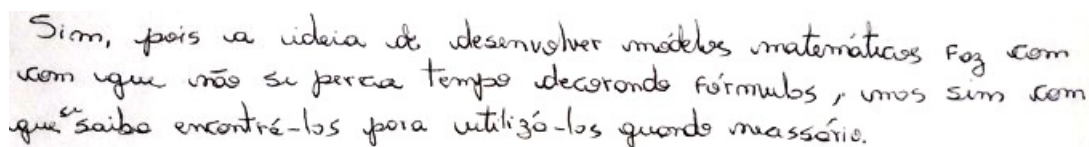 Sim, pois a ideia de desenvolver modelos matemáticos faz com
com que não se perca tempo decorando fórmulas, mas sim com
que se saiba encontrá-las para utilizá-las quando necessário.